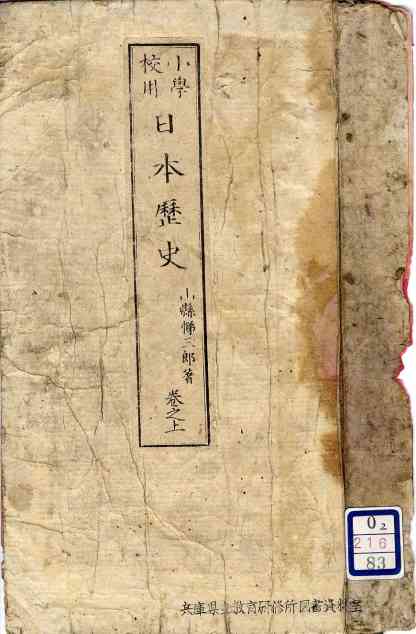 小學
校用
日本歷史
小縣悌三郎著
卷之上
0₂
216
83
兵庫県立教育研修所図書資料室